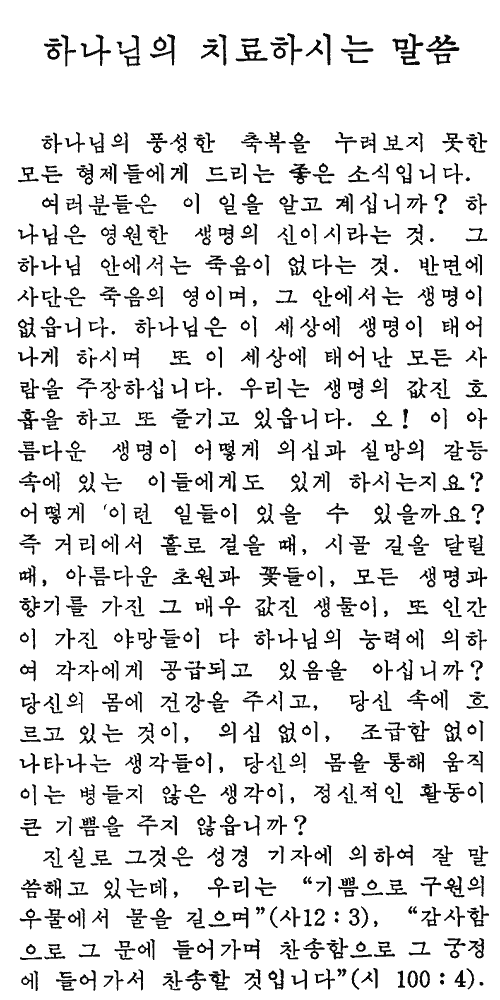 하나님의 치료하시는 말씀
하나님의 풍성한 축복을 누려보지 못한
모든 형제들에게 드리는 좋은 소식입니다.
여러분들은 이 일을 알고 계십니까? 하
나님은 영원한 생명의 신이시라는 것. 그
하나님 안에서는 죽음이 없다는 것. 반면에
사단은 죽음의 영이며, 그 안에서는 생명이
없읍니다. 하나님은 이 세상에 생명이 태어
나게 하시며 또 이 세상에 태어난 모든 사
람을 주장하십니다. 우리는 생명의 값진 호
흡을 하고 또 즐기고 있읍니다. 오! 이 아
름다운 생명이 어떻게 의심과 실망의 갈등
속에 있는 이들에게도 있게 하시는지요?
어떻게 이런 일들이 있을 수 있을까요?
즉 거리에서 홀로 걸을 때, 시골 길을 달릴
때, 아름다운 초원과 꽃들이, 모든 생명과
향기를 가진 그 매우 값진 생물이, 또 인간
이 가진 야망들이 다 하나님의 능력에 의하
여 각자에게 공급되고 있음을 아십니까?
당신의 몸에 건강을 주시고, 당신 속에 흐
르고 있는 것이, 의심 없이, 조급함 없이
나타나는 생각들이, 당신의 몸을 통해 움직
이는 병들지 않은 생각이, 정신적인 활동이
큰 기쁨을 주지 않읍니까?
진실로 그것은 성경 기자에 의하여 잘 말
씀해고 있는데, 우리는 “기쁨으로 구원의
우물에서 물을 길으며”(사12 : 3), “감사함
으로 그 문에 들어가며 찬송함으로 그 궁정
에 들어가서 찬송할 것입니다”(시 100 : 4).